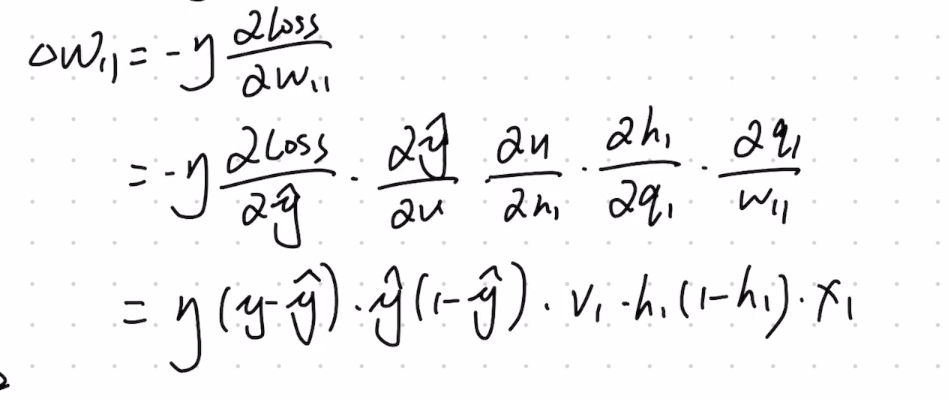 Δw₁₁ = -η ∂Loss/∂w₁₁
= -η ∂Loss/∂ŷ · ∂ŷ/∂u ∂u/∂h₁ · ∂h₁/∂q₁ · ∂q₁/w₁₁
= η(y-ŷ)·ŷ(1-ŷ)·v₁·h₁(1-h₁)·x₁